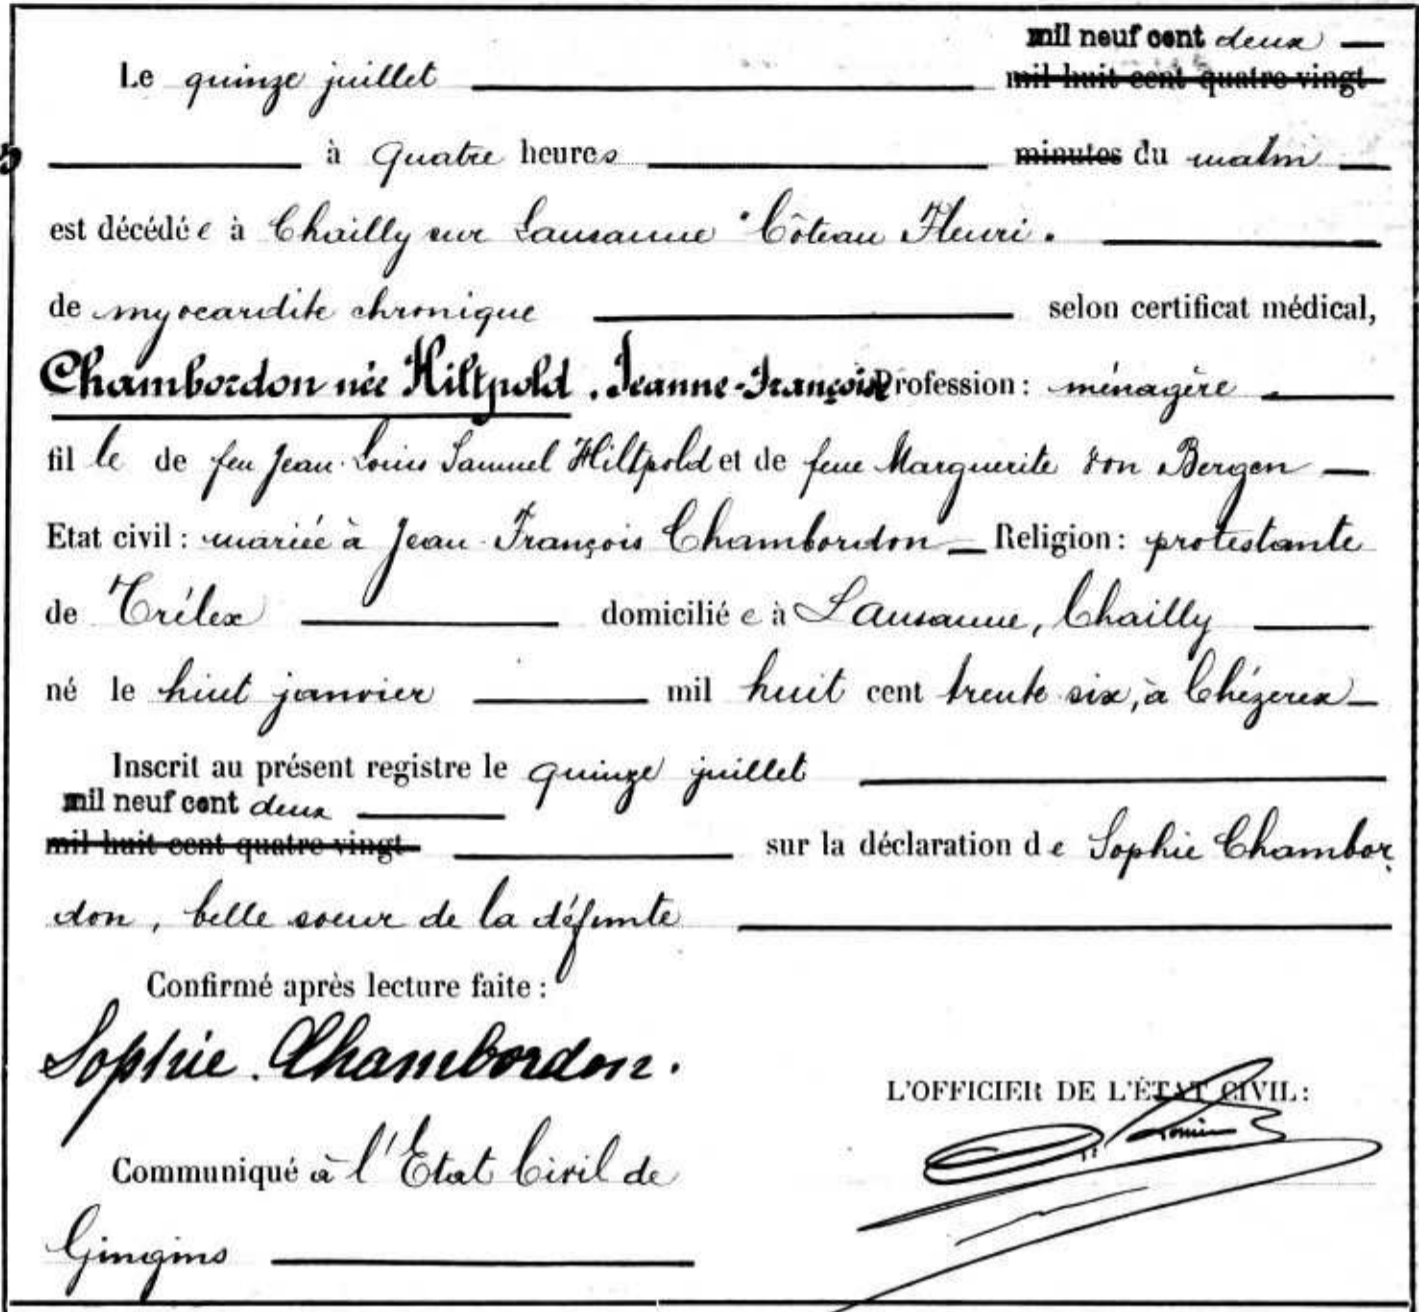 mil neuf cent deux
Le quinze juillet mil huit cent quatre vingt
à quatre heures minutes du matin
est décédée à Chailly sur Lausanne "Côteau Fleuri.
de myocardite chronique selon certificat médical,
Chambordon née Hiltpold. Jeanne-Françoise Profession: ménagère
fille de feu Jean-Louis Samuel Hiltpold et de feue Marguerite von Bergen
Etat civil: mariée à Jean-François Chambordon Religion: protestante
de Trélex domiciliée à Lausanne, Chailly
né le huit janvier mil huit cent trente six, à Chézerex
Inscrit au présent registre le quinze juillet
mil neuf cent deux
mil huit cent quatre vingt sur la déclaration de Sophie Chambor
don, belle soeur de la défunte
Confirmé après lecture faite:
Sophie. Chambordon.
L'OFFICIER DE L'ÉTAT CIVIL:
Communiqué à l'Etat Civil de
Gingins